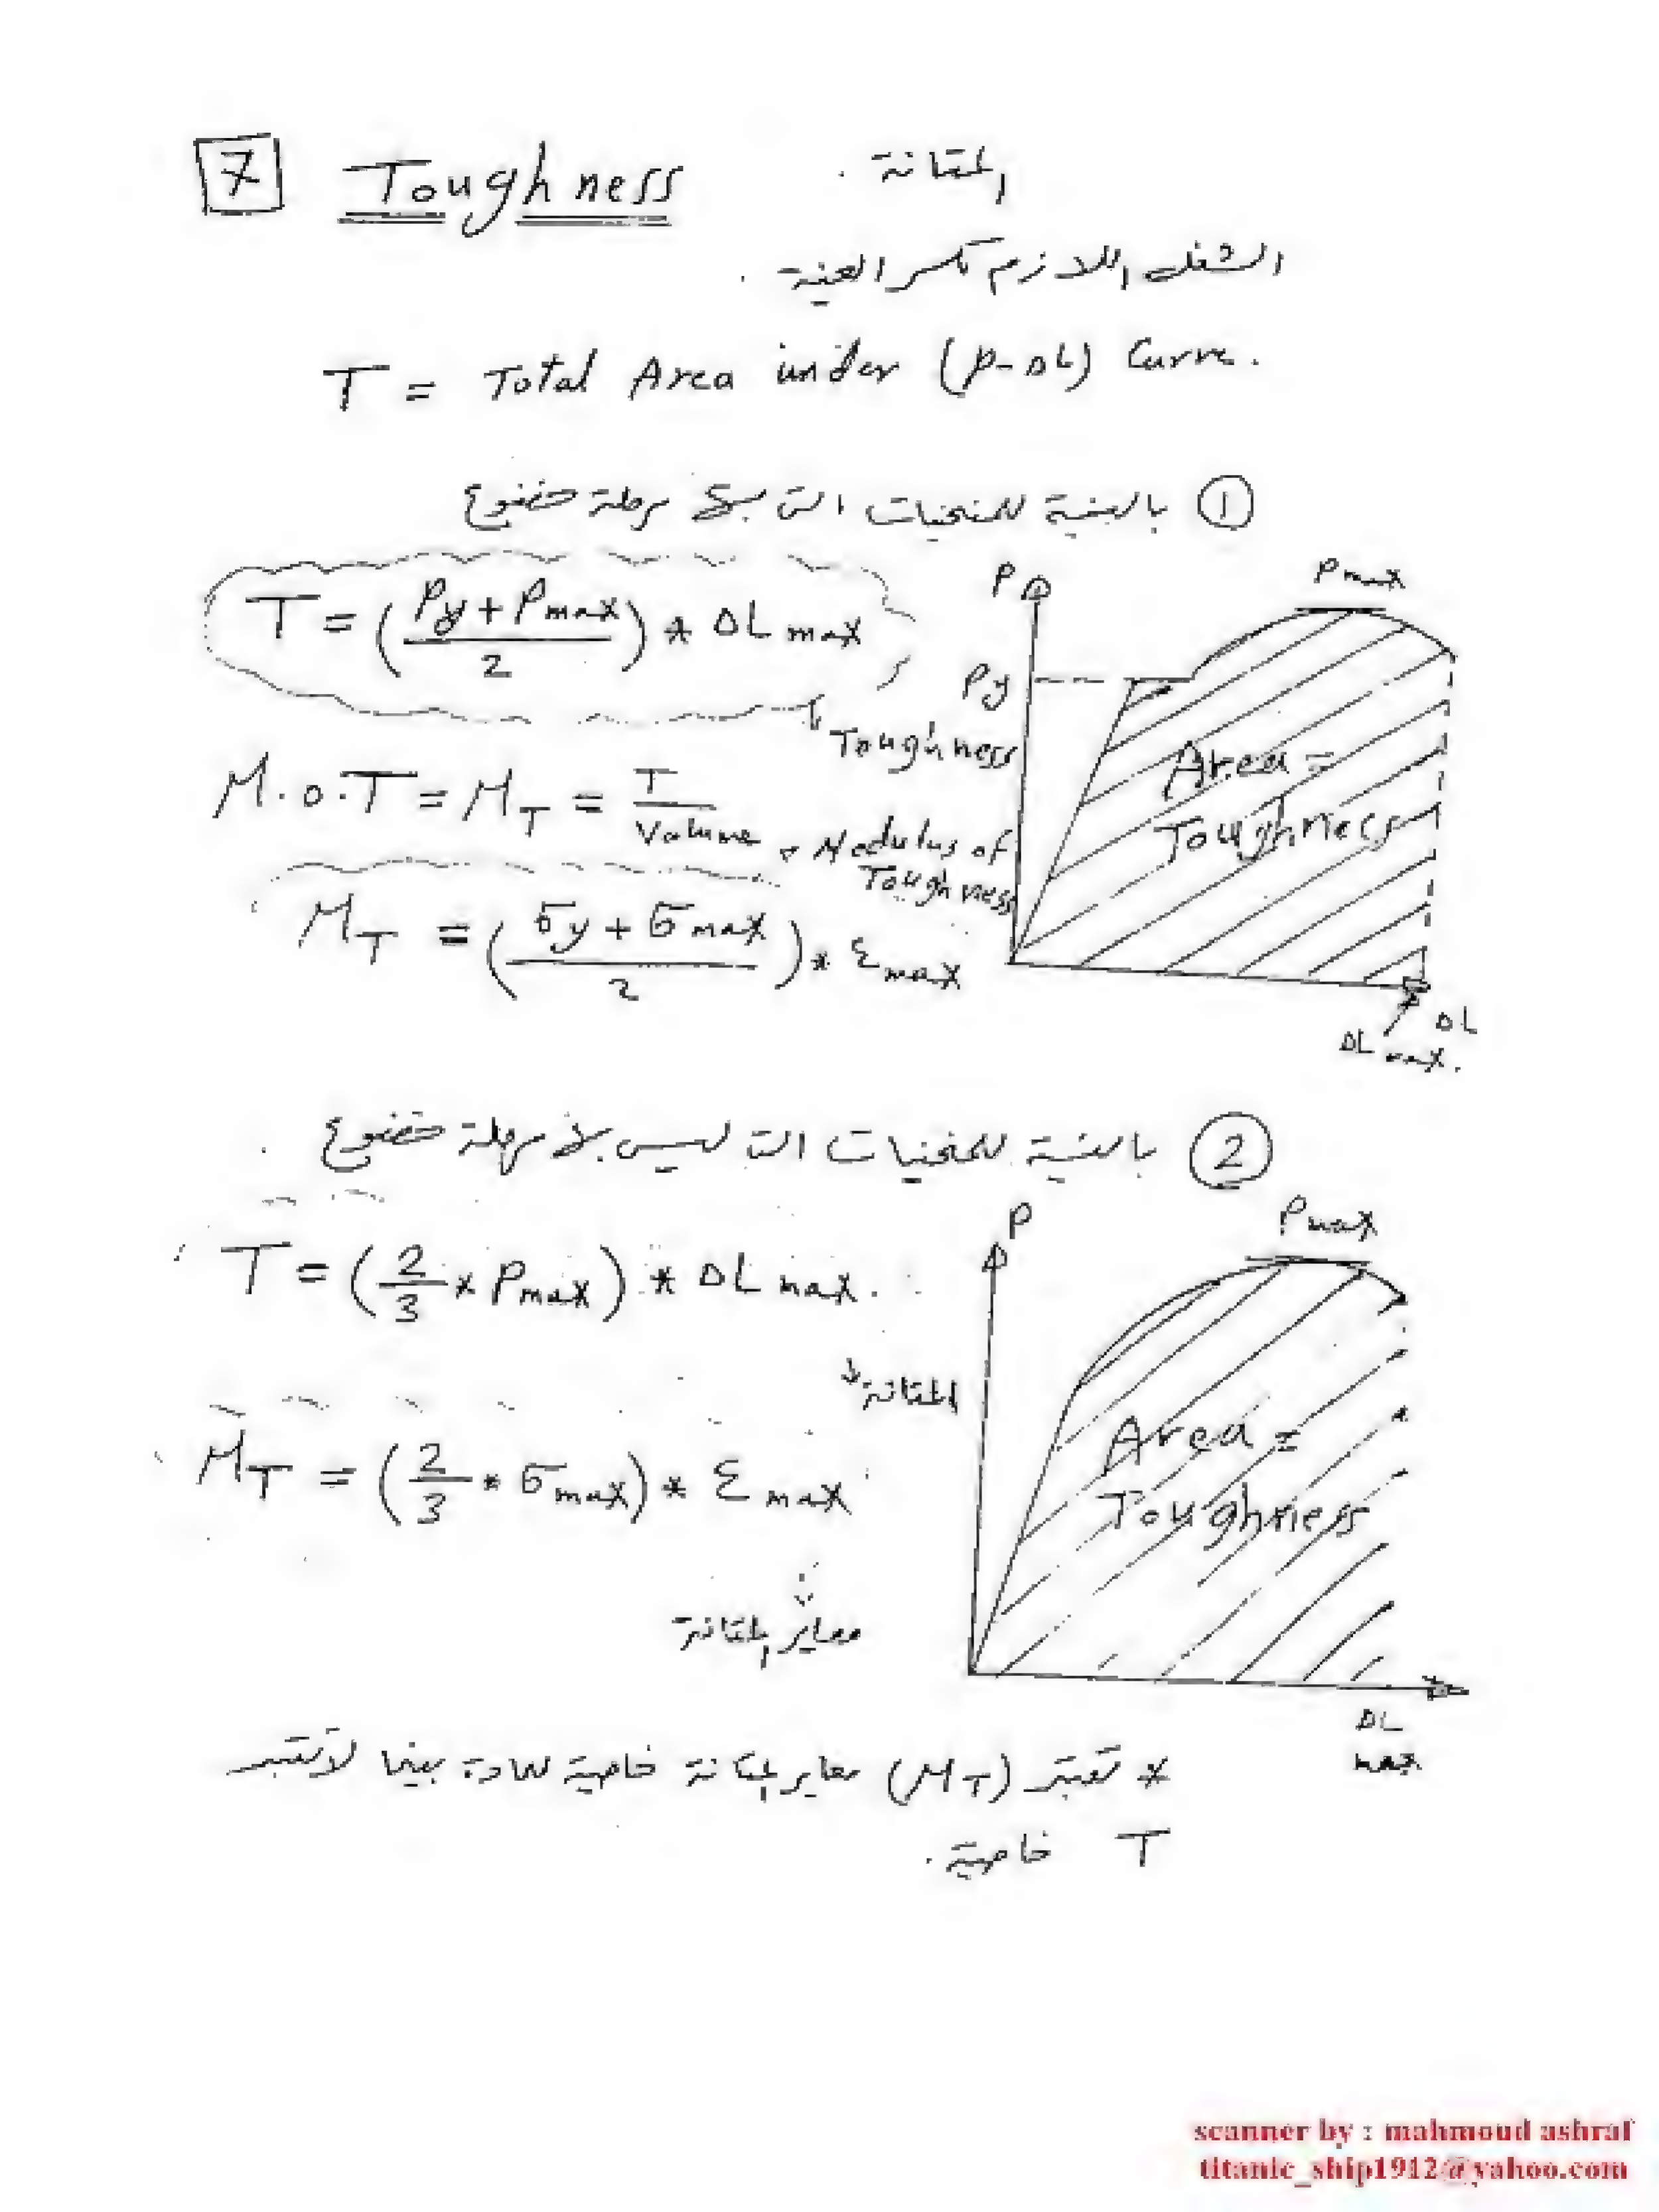 7 Toughness المتانة .
الشغل اللازم لكسر العينة .
T = Total Area under (P-ΔL) Curve.
① بالنسبة للمنحنيات التى بها مرحلة خضوع
T = (Py + Pmax / 2) * ΔL max
Toughness
M.O.T = MT = T / Volume
Modulus of
Toughness
MT = (σy + σmax / 2) * εmax
P
Pmax
Py
Area =
Toughness
ΔL
ΔL max.
② بالنسبة للمنحنيات التى ليس بها مرحلة خضوع .
T = (2/3 * Pmax) * ΔL max.
المتانة
MT = (2/3 * σmax) * εmax
معاير المتانة
P
Pmax
Area =
Toughness
ΔL
max
* تعتبر (MT) معاير المتانة خاصية للمادة بينما لا تعتبر
T خاصية .
scanner by : mahmoud ashraf
titanic_ship1912@yahoo.com